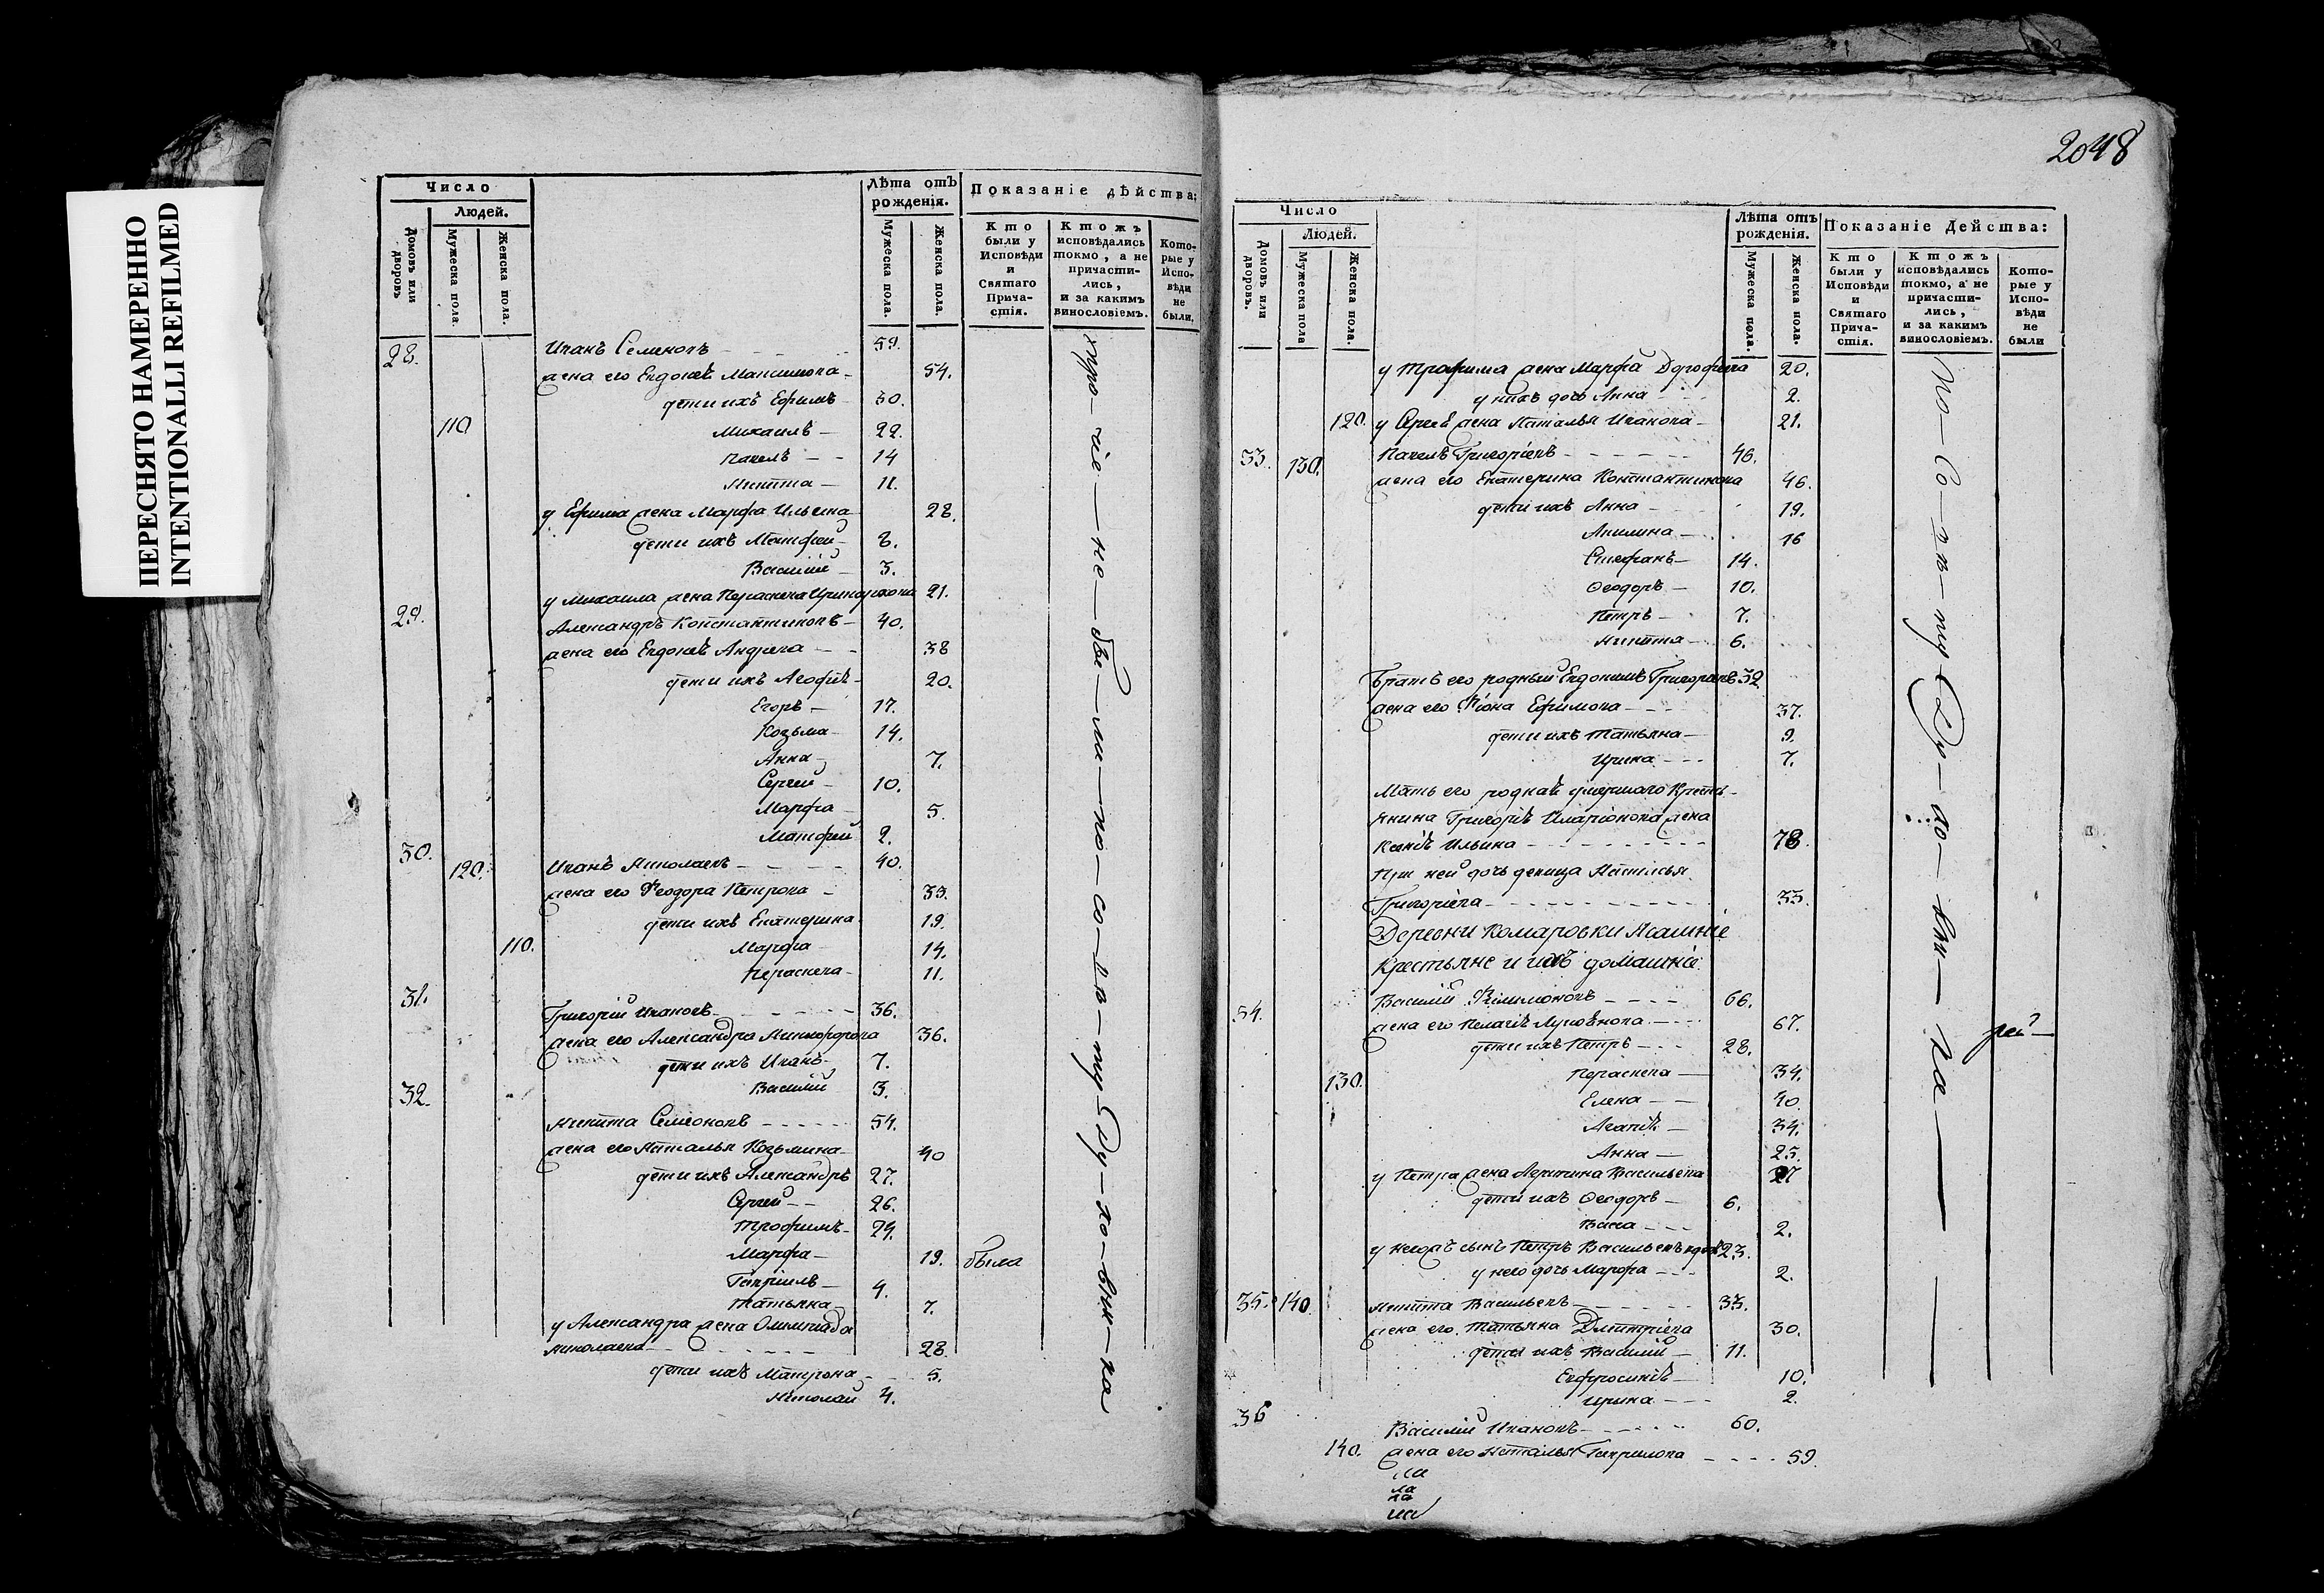 ПЕРЕСНЯТО НАМЕРЕННО
INTENTIONALLI REFILMED
Число
Людей.
Домовъ или дворовъ
Мужеска пола.
Женска пола.
Лѣта отъ рожденія.
Мужеска пола.
Женска пола.
Показаніе дѣйства:
Кто были у Исповѣди и Святаго Причастія.
Ктожъ исповѣдались токмо, а не причастились, и за какимъ винословіемъ.
Которые у Исповѣди не были.
28. Иванъ Семеновъ 59.
жена его Евдокія Максимова 54.
дети ихъ Ефимъ 30.
110 Михаилъ 22.
Павелъ 14
Никита 11.
у Ефима жена Марфа Ильина 28.
дети ихъ Матфей 8.
Василій 3.
у Михаила жена Параскева 21.
29. Александръ Константиновъ 40.
жена его Евдокія Андреева 38
дети ихъ Агафія 20.
Егоръ 17.
Козьма 14.
Анна 7.
Сергей 10.
Марфа 5.
Матфей 2.
30. 120. Иванъ Николаевъ 40.
жена его Феодора Петрова 39.
дети ихъ Екатерина 19.
110. Марфа 14.
Параскева 11.
31. Григорій Ивановъ 36.
жена его Александра Никифорова 36.
дети ихъ Иванъ 7.
Василій 3.
32. Никита Семеоновъ 54.
жена его Наталья Козьмина 40
дети ихъ Александръ 27.
Сергей 26.
Трофимъ 24.
Марфа 19. была
Гавріилъ 4.
Татьяна 7.
у Александра жена Олимпіада
Николаева 28.
дети ихъ Матрона 5.
Николай 4.
прочіе не были по совѣту Духовника
2048
Число
Людей.
Домовъ или дворовъ.
Мужеска пола
Женска пола.
Лѣта отъ рожденія.
Мужеска пола.
Женска пола.
Показаніе Дейсшва:
Кто были у Исповѣди и Святаго Причастія.
Ктожъ исповѣдались токмо, а не причастились, и за какимъ винословіемъ.
Которые у Исповѣди не были
у Трофима жена Марфа Дорофеева 20.
у нихъ дочь Анна 2.
120. у Сергея жена Наталья Иванова 21.
33. 130. Павелъ Григоріевъ 46.
жена его Екатерина Константинова 46.
дети ихъ Анна 19.
Акилина 16
Стефанъ 14.
Феодоръ 10.
Петръ 7.
Никита 6.
Братъ его родный Евдокимъ Григорьевъ 32
жена его Ефимова 37.
дети ихъ Татьяна 9.
Ирина 7.
Мать его родная умершаго Кресть-
янина Григорія Иларіонова жена
Ксенія Ильина 78.
При ней дочь девица Наталья
Григоріева 33.
Деревни Комаровки Ясашніе
Крестьяне и ихъ домашніе
34. Василій Филимоновъ 66.
жена его Пелагія 67.
дети ихъ Петръ 28.
130. Параскева 34.
Елена 40.
Агапія 34.
Анна 25.
у Петра жена Васильева 27
дети ихъ Феодоръ 6.
Васса 2.
у сынъ Петръ Васильевъ вдовъ 23.
у него дочь Марфа 2.
35. 140. Никита Васильевъ 33.
жена его Татьяна Дмитріева 30.
дети ихъ Василій 11.
Евфросинія 10.
Ирина 2.
36 Василій Ивановъ 60.
140. жена его Наталья Гаврилова 59.
по совѣту Духовника